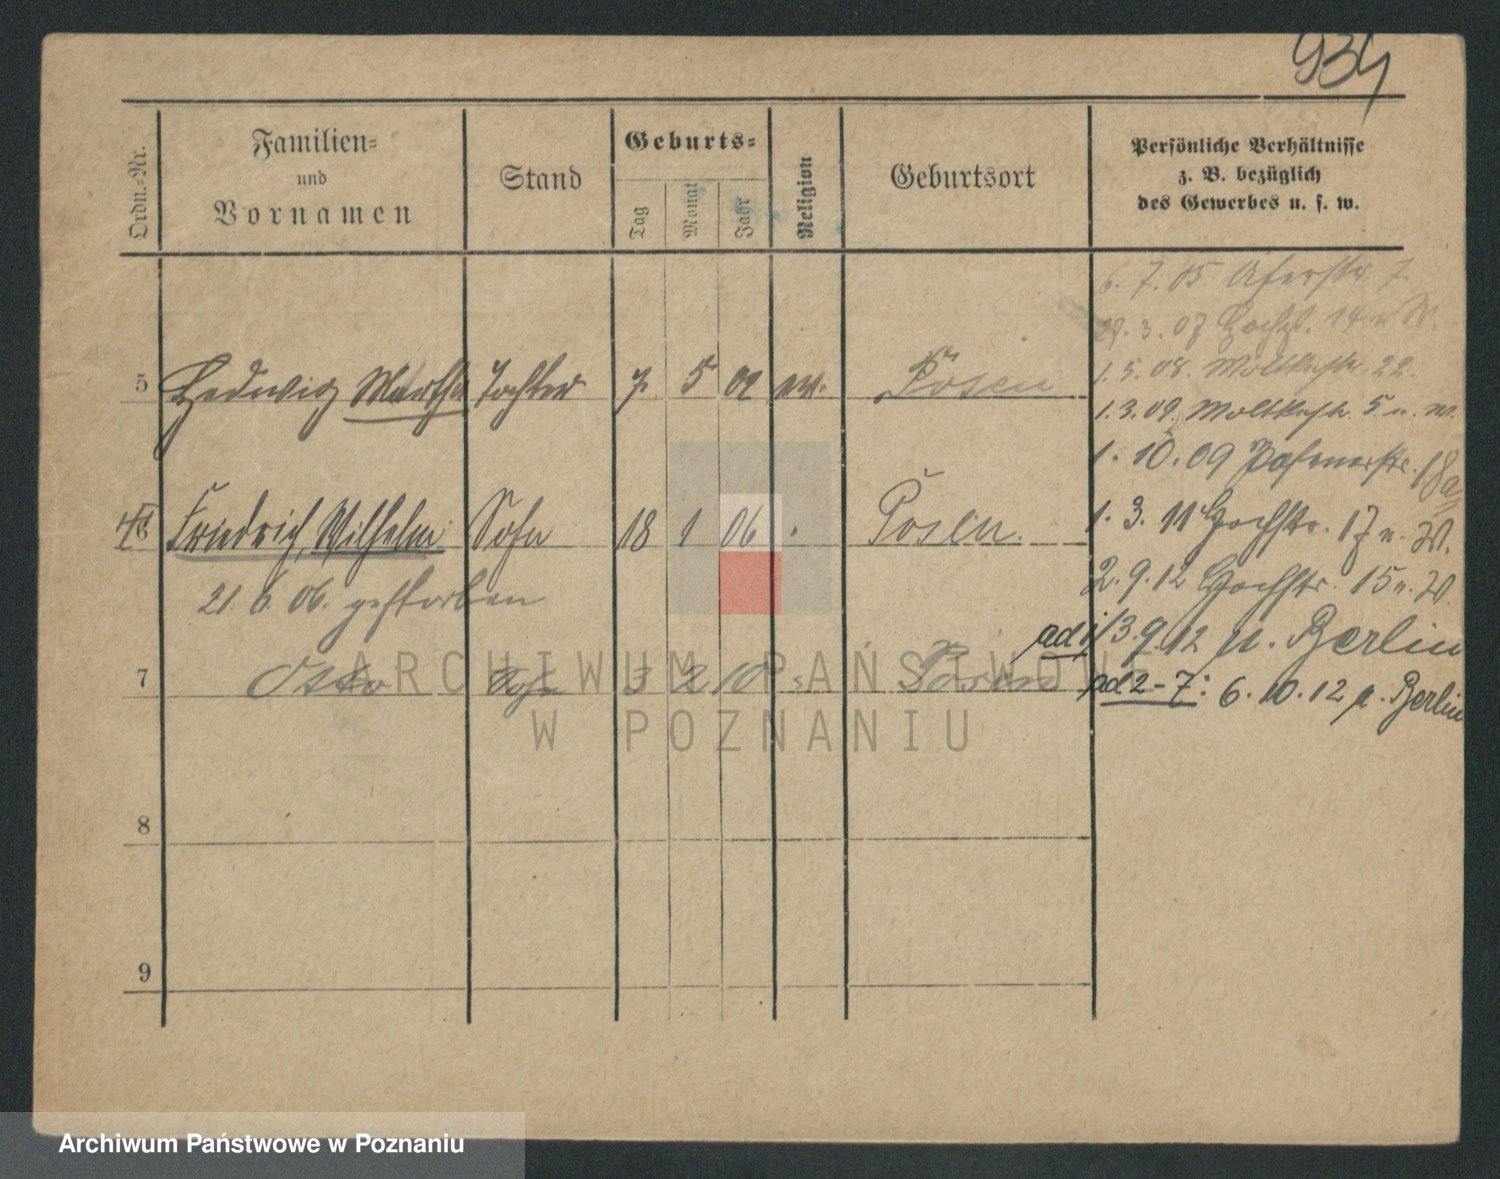 934
Ordn.-Nr.
Familien-
und
Vornamen
Stand
Geburts-
Tag
Monat
Jahr
Religion
Geburtsort
Persönliche Verhältnisse
z. B. bezüglich
des Gewerbes u. s. w.
6. 7. 05 7
3. 07 14 W.
1. 5. 08. Moltkestr. 22.
5 Hedwig Martha Tochter 7. 5 02 ev. Posen
1. 3. 09. Moltkestr. 5. u. W.
1. 10. 09 18a
6 Friedrich, Wilhelm Sohn 18 1 06 " Posen.
1. 3. 11 Hochstr. 17 u. W.
21. 6. 06. gestorben
2. 9. 12 Hochstr. 15 u. W.
ad 1/ 3. 9. 12 n. Berlin
7 Otto Sohn 3 2 10 " Posen
ad 2-7: 6. 10. 12 n. Berlin
8
9
ARCHIWUM PAŃSTWOWE
W POZNANIU
Archiwum Państwowe w Poznaniu